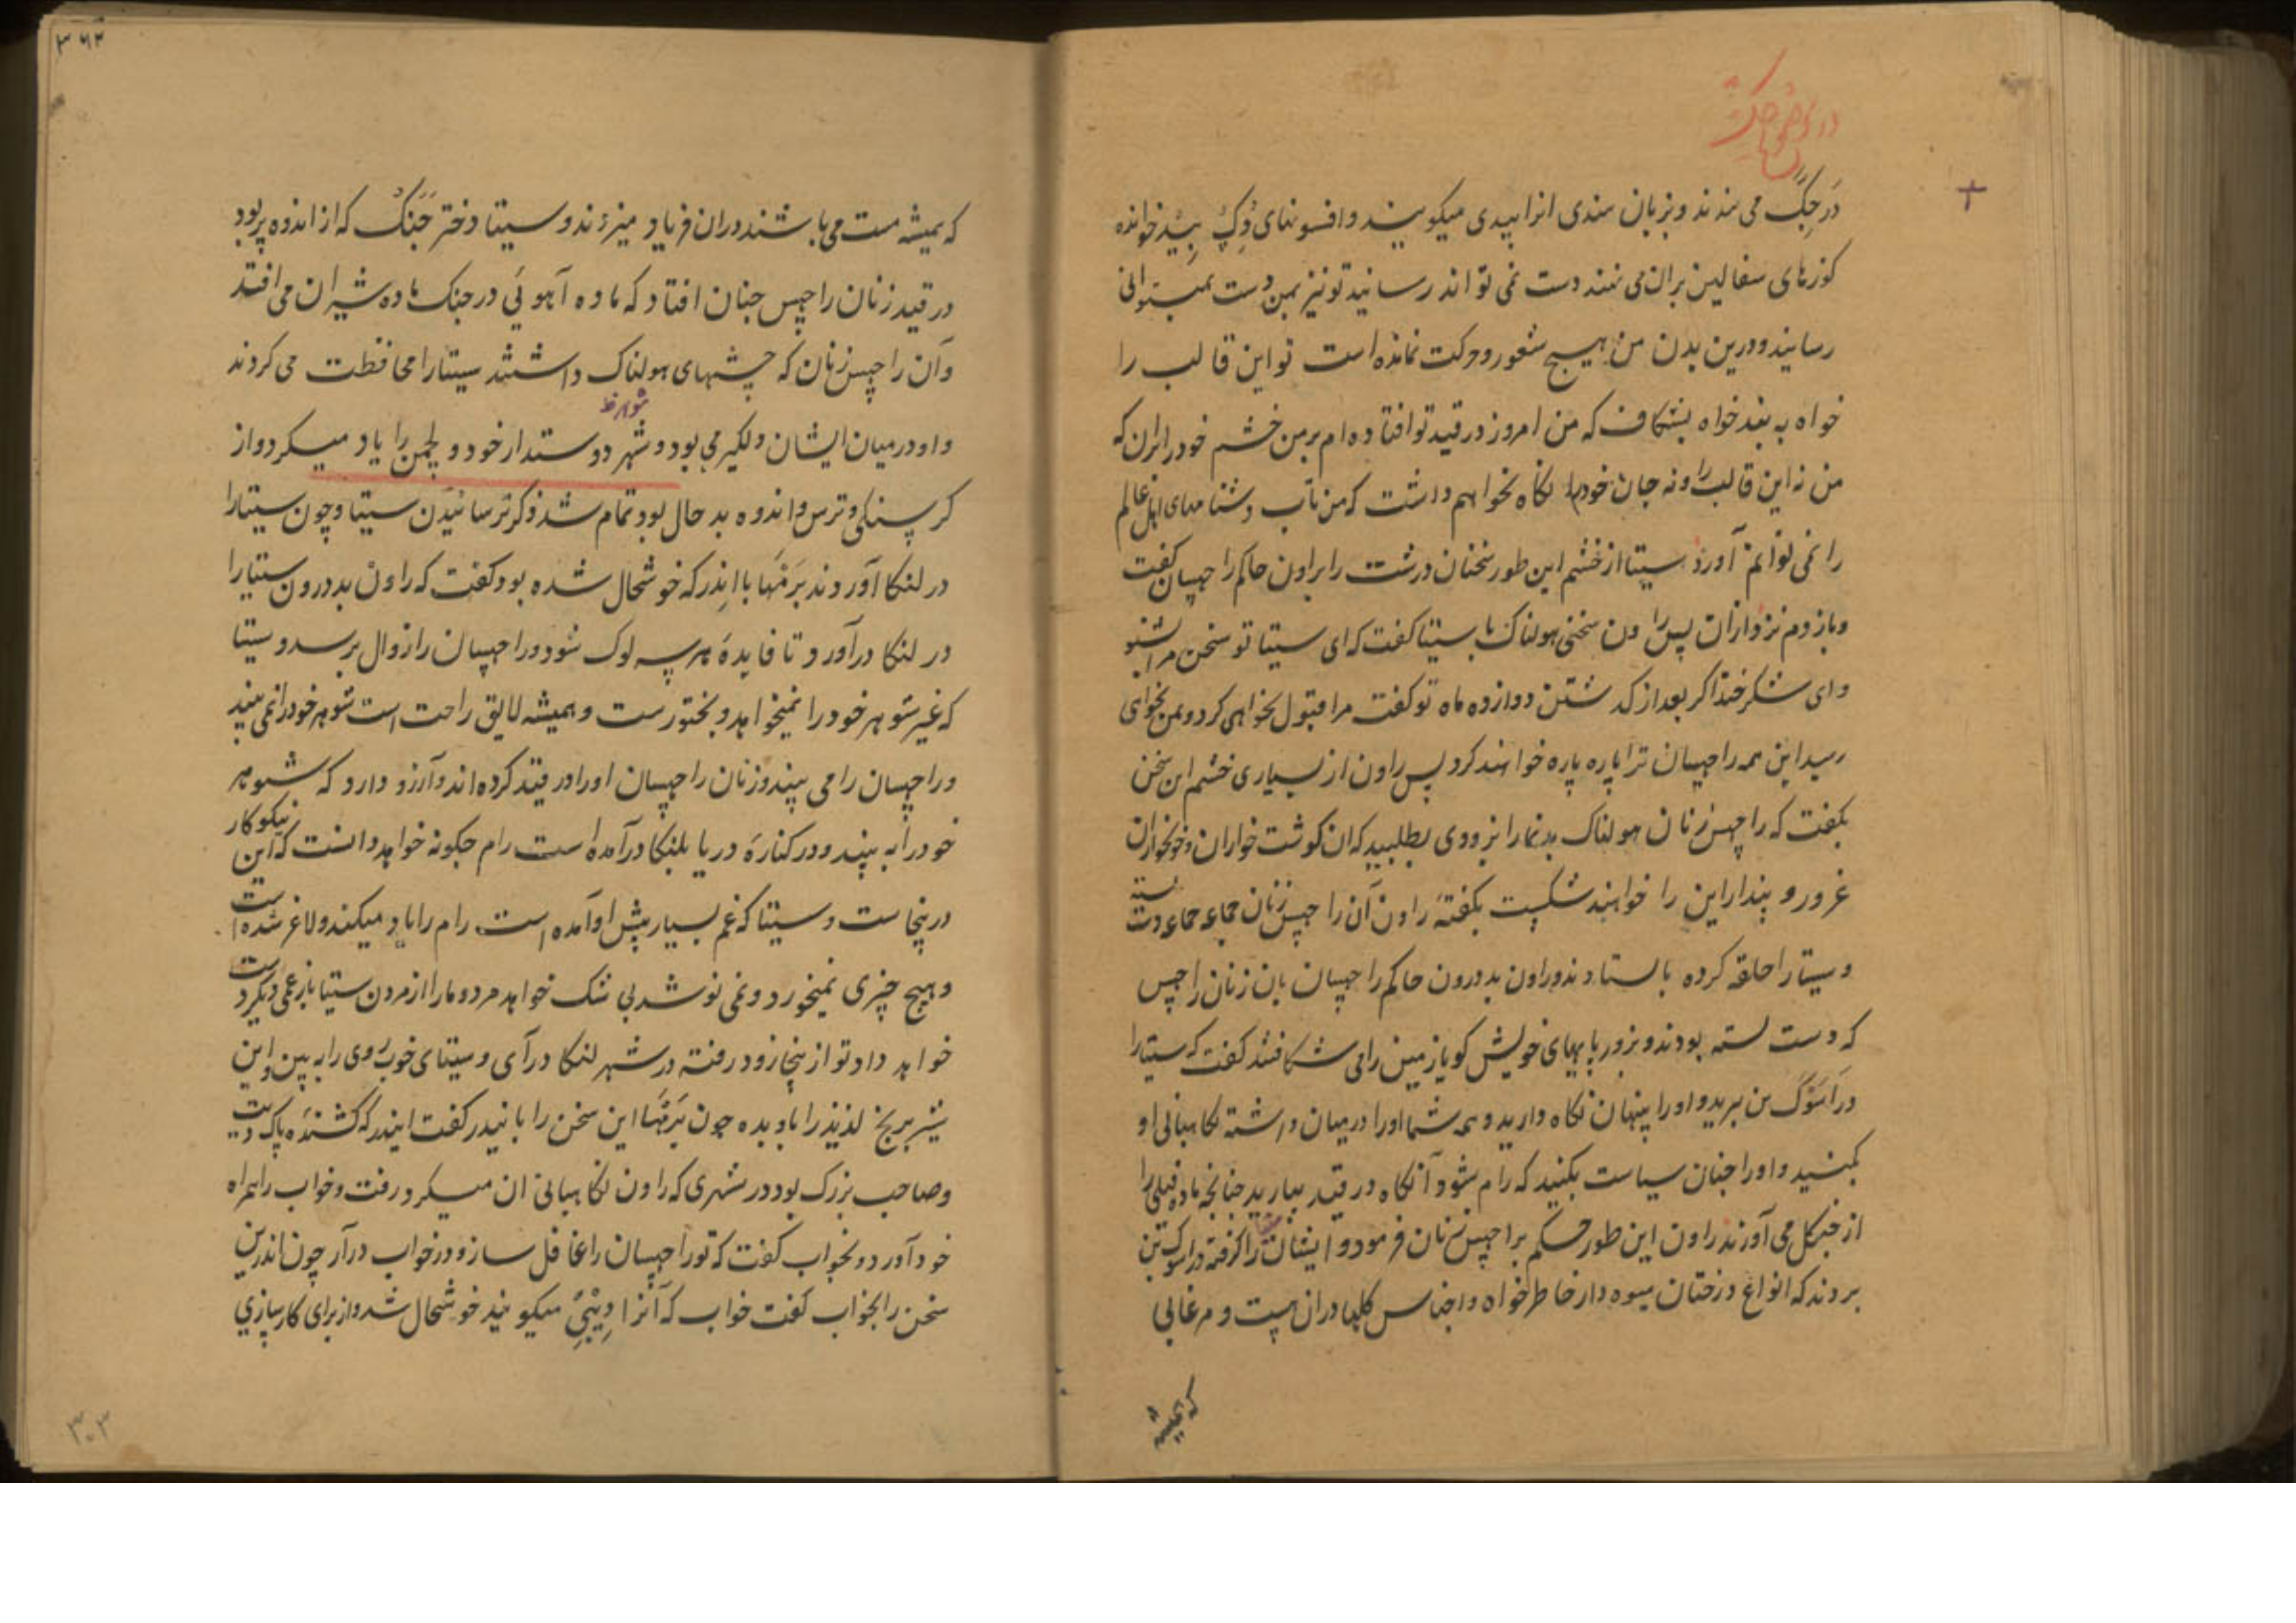 در جگ می نهند و بزبان هندی انرا بیدی میگویند و افسونهای رگ بید خوانده
کوزهای سفالین بران می نهند دست نمی تواند رسانید تو نیز بمن دست نمیتوانی
رسانید و درین بدن من هیچ شعور و حرکت نمانده است تو این قالب را
خواه به بند خواه بشکاف که من امروز در قید تو افتاده ام بر من خشم خود را بران که
من نه این قالب را و نه جان خود را نگاه نخواهم داشت که من تاب دشنامهای اهل عالم
را نمی توانم آورد سیتا از خشم این طور سخنان درشت را براون حاکم راچهسان گفت
و باز دم نزد ازان پس راون سخنی هولناک با سیتا گفت که ای سیتا تو سخن مرا بشنو
و ای شکرخند اگر بعد از گذشتن دوازده ماه تو گفت مرا قبول نخواهی کرد و بمن نخواهی
رسید این همه راچهسان ترا پاره پاره خواهند کرد پس راون از بسیاری خشم این سخن
بگفت که راچهس زنان هولناک بدنما را بزودی بطلبید که ان گوشت خواران و خونخواران
غرور و پندار این را خواهند شکست بگفتهٔ راون آن راچهس زنان جماعه جماعه دست بسته
و سیتا را حلقه کرده باستادند و راون بدرون حاکم راچهسان بان زنان راچهس
که دست بسته بودند و بزور پایهای خویش گویا زمین را می شکافتند گفت که سیتا را
در اسوگ بن ببرید و او را پنهان نگاه دارید و همه شما او را درمیان داشته نگاهبانی او
بکنید و او را چنان سیاست بکنید که رام شود آنگاه در قید بیارید چنانچه ماده فیلی را
از جنگل می آورند راون این طور حکم براچهس زنان فرمود و ایشان سیتا را گرفته در اسوگ بن
بردند که انواع درختان میوه دار خاطر خواه و اجناس گلها دران هست و مرغابی
که همیشه
۳۶۲
که همیشه مست می باشند دران فریاد میزنند و سیتا دختر جنک که از اندوه پر بود
در قید زنان راچهس چنان افتاد که ماده آهوئی در چنگ ماده شیران می افتد
و آن راچهس زنان که چشمهای هولناک داشتند سیتا را محافظت می کردند
شوهر
و او درمیان ایشان دلگیر می بود و شهر دوستدار خود و لچمن را یاد میکرد و از
گرسنگی و ترس و اندوه بد حال بود تمام شد ذکر ترسانیدن سیتا و چون سیتا را
در لنکا آوردند برمها با اندر که خوشحال شده بود گفت که راون بدرون سیتا را
در لنکا درآورد تا فایدهٔ هر سه لوک شود و راچهسان را زوال برسد و سیتا
که غیر شوهر خود را نمیخواهد و بختورست و همیشه لایق راحت است شوهر خود را نمی بیند
و راچهسان را می بیند و زنان راچهسان او را در قید کرده اند و آرزو دارد که شوهر
خود را به بیند و در کنارهٔ دریا بلنکا درآمده است رام چگونه خواهد دانست که این نیکوکار
درینجاست و سیتا که غم بسیار پیش او آمده است رام را یاد میکند و لاغر شده است
و هیچ چیزی نمیخورد و نمی نوشد بی شک خواهد مرد و ما را از مردن سیتا باز غمی دیگر دست
خواهد داد تو از ینجا زود رفته در شهر لنکا درآی و سیتای خوب روی را به بین و این
شیر برنج لذیذ را باو بده چون برمها این سخن را باندر گفت ایندر که کشندهٔ پاک دیت
و صاحب بزرگ بود در شهری که راون نگاهبانی ان میکرد رفت و خواب را همراه
خود آورد و بخواب گفت که تو راچهسان را غافل ساز و در خواب درآر چون اندر این
سخن را بخواب گفت خواب که آنرا دیبی میگویند خوشحال شد و از برای کارسازی
۳۰۳